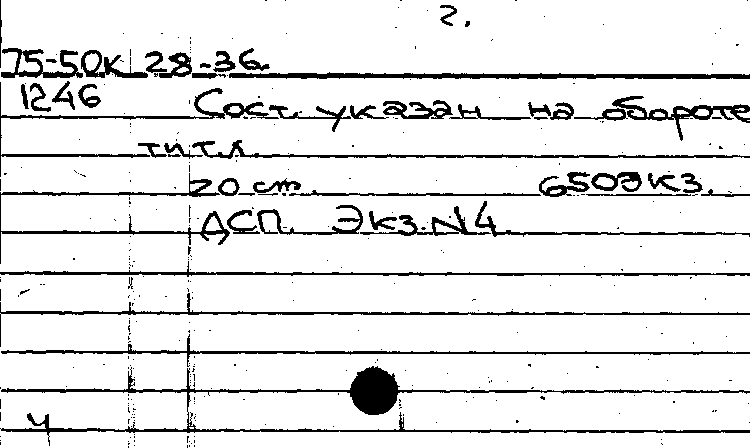 2.
75-50к 28-36.
1246 Сост. указан на обороте
тит.л.
20 см. 650экз.
ДСП. Экз.N4.
ч